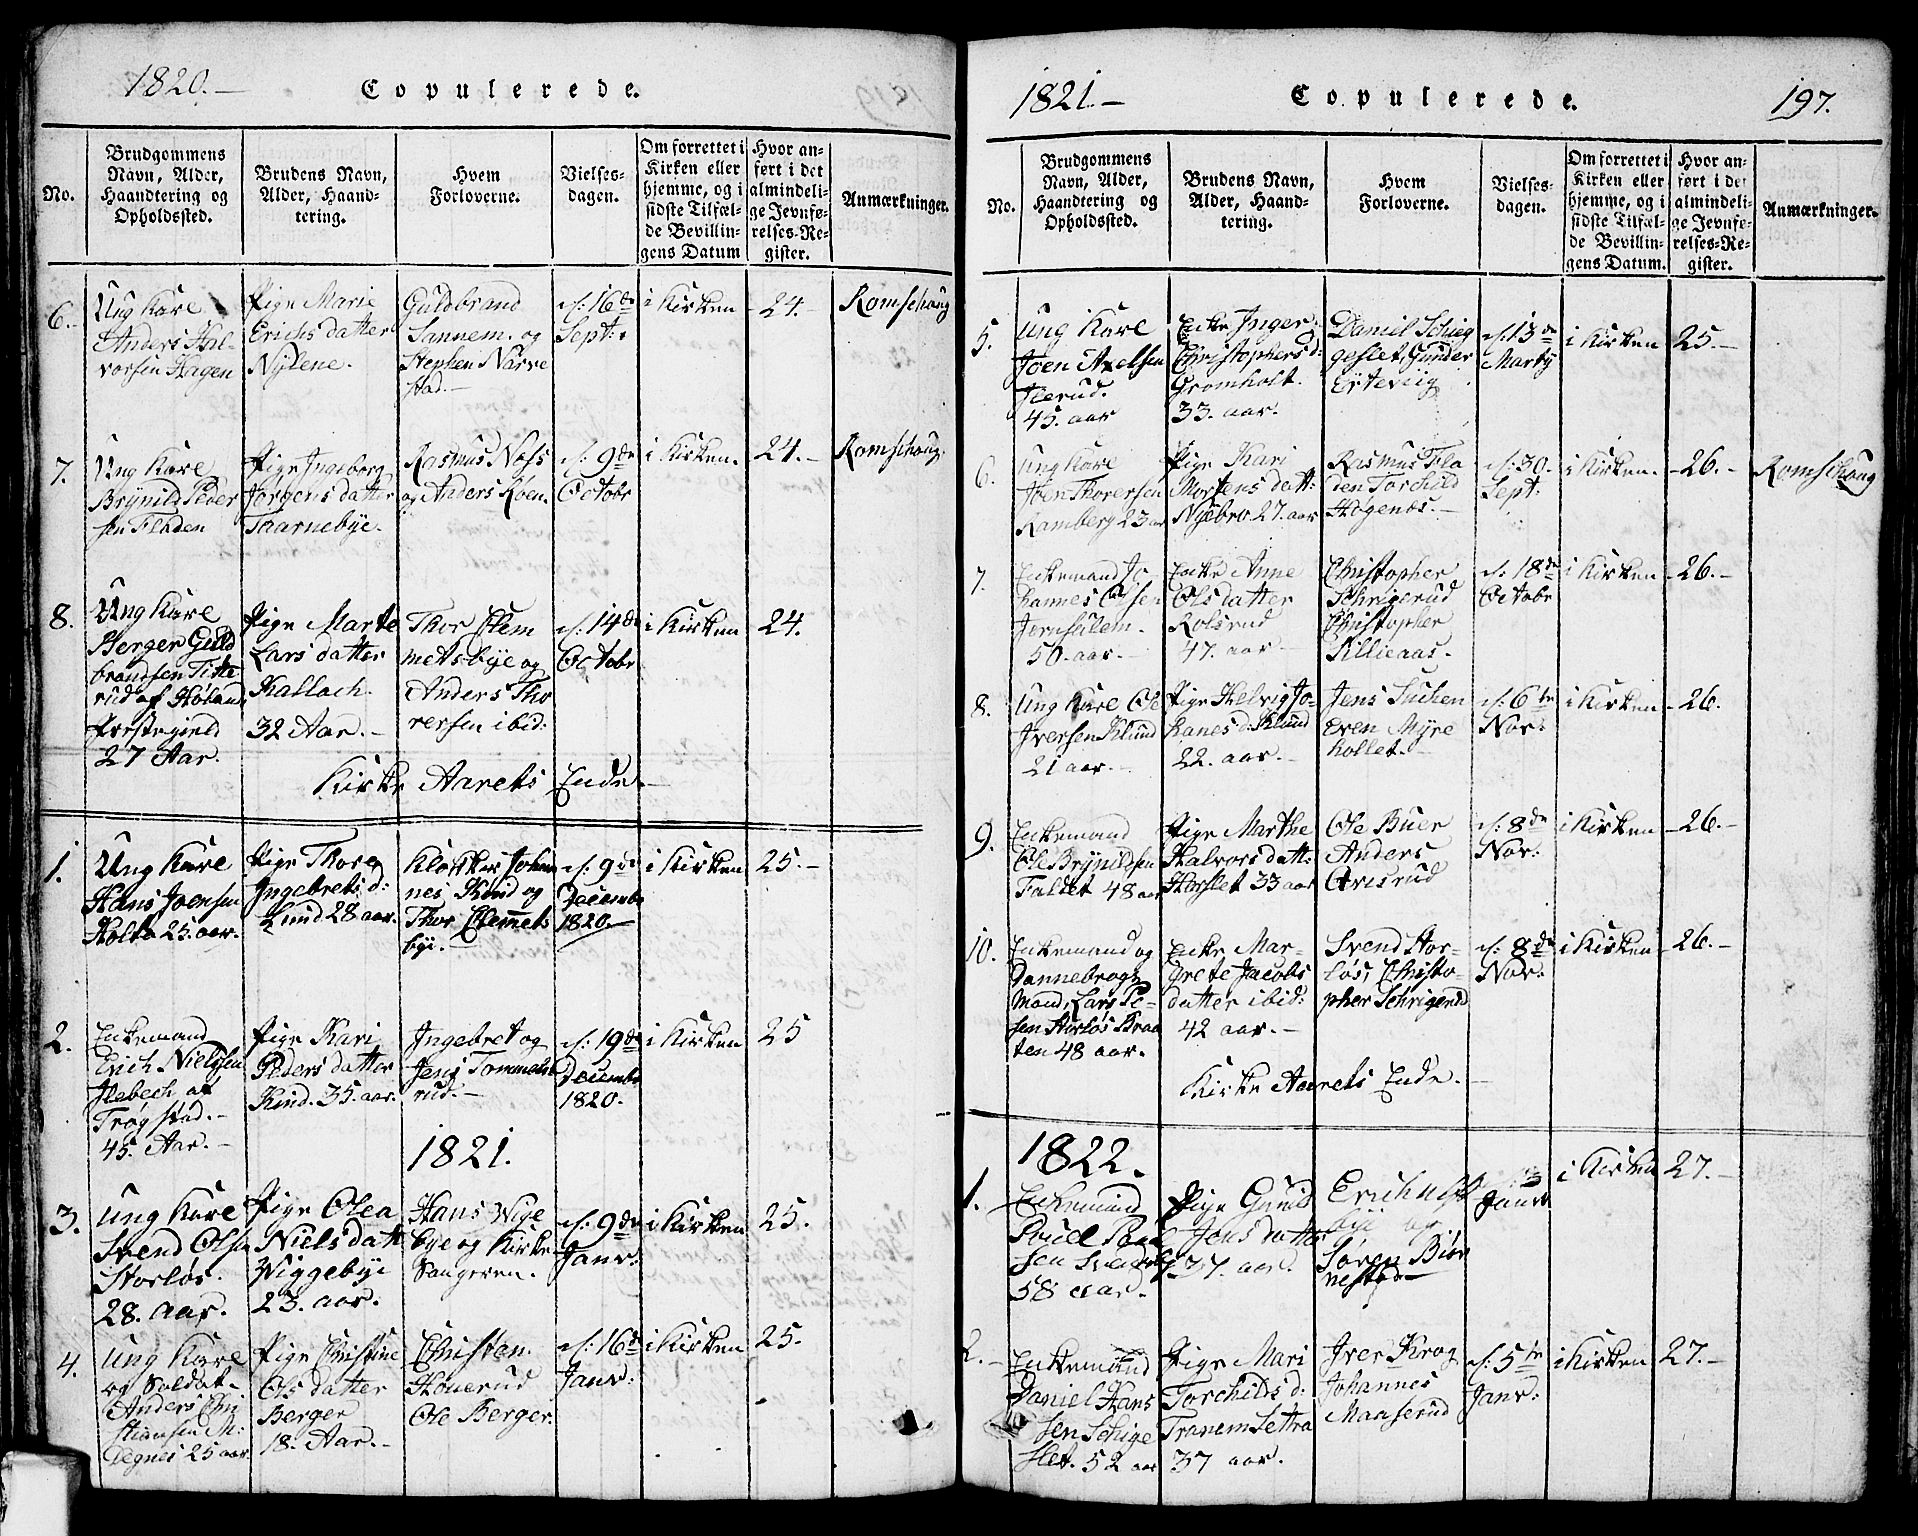 1820.—
Copulerede.
No.
Brudgommens
Navn, Alder,
Haandtering og
Opholdssted.
Brudens Navn,
Alder, Haand-
tering.
Hvem
Forloverne.
Vielses-
dagen.
Om forrettet i
Kirken eller
hjemme, og i
sidste Tilfæl-
de Bevillin-
gens Datum
Hvor an-
ført i det
almindeli-
ge Jevnfø-
relses-Re-
gister.
Anmærkninger.
6.
Ung Karl
Anders Hal-
vorsen Hagen
Pige Marie
Erichsdatter
Nylene.
Guldbrand
Sannem. og
Stephen Narve
stad.—
d: 16de
Sept:
i Kirken
24.—
Romschoug
7.
Ung Karl
Brynild Peder
sen Fladen
Pige Ingeborg
Jørgensdatter
Taarnebye.
Rasmus Noss
og Anders Roen.
d: 9de
Octobr
i Kirken.
24.—
Romschoug.
8.
Ung Karl
Berger Guld
brandsen Titte
rud af Høland
Præstegield
27 Aar.
Pige Marte
Larsdatter
Kallach.
32 Aar.—
Thor Clem
metsbye og
Anders Tho
rersen ibid:
d: 14de
Octobr
i Kirken
24.
Kirke Aarets Ende.—
1.
Ung Karl
Hans Joensen
Holto 25. aar.
Pige Thore
Ingebretsd:
Lund 28 aar.
Klokker Johan
nes Kind og
Thor Clemmets
bye.—
d: 9de
Decembr
1820.—
i Kirken
25.—
2.
Enkemand
Erich Nielsen
Ilebech af
Trøgstad.—
45. Aar.—
Pige Kari
Pedersdatter
Kind. 35. aar.
Ingebret og
Jens Tommels
rud.—
d: 19de
Decembr
1820.
i Kirken
25
1821.
3.
Ung Karl
Svend Olsen
Storløs.
28. aar.
Pige Olea
Nielsdatt
Wiggebye
23. aar.
Hans Wige
bye og Kirke
Sangeren.
d: 9de
Janr:
i Kirken
25.
4.
Ung Karl
og Soldat
Anders Chri
stiansen M:
Degnes 25 aar
Pige Christine
Olsdatter
Berger
18. Aar.—
Christan
Houerud
Ole Berger.
d: 16de
Janr:
i Kirken
25.
1821.—
Copulerede.
197.
No.
Brudgommens
Navn, Alder,
Haandtering og
Opholdssted.
Brudens Navn,
Alder, Haand-
tering.
Hvem
Forloverne.
Vielses-
dagen.
Om forrettet i
Kirken eller
hjemme, og i
sidste Tilfæl-
de Bevillin-
gens Datum.
Hvor an-
ført i det
almindeli-
ge Jevnfø-
relses-Re-
gister.
Anmærkninger.
5.
Ung Karl
Joen Axelsen
Ilerud.
45. aar
Enke Inger
Christophersd:
Gromholt.
33. aar.
Daniel Schieg
geslet, Gunder
Erteviig
d: 13de
Marty
i Kirken
25.—
6.
Ung Karl
Joen Thorersen
Ramberg 23 aar
Pige Kari
Mortensdatt:
Nysbro 27. aar
Rasmus Fla
den Torchild
Hogenæs.—
d: 30.
Sept:
i Kirken.
26.—
Romschoug
7.
Enkemand Jo
hannes Olsen
Jerusalem.
50. aar.—
Enke Anne
Olsdatter
Rolsrud
47. aar.—
Christopher
Schrigerud
Christopher
Killieaas.—
d: 18de
Octobr
i Kirken
26.—
8.
Ung Karl Ole
Iversen Klund
21 aar.—
Pige Helvig Jo-
hanes d. Klund
22. aar.—
Jens Suchen
Even Myre
kollet.—
d: 6te
Nov:
i Kirken
26.
9.
Enkemand
Ole Brynildsen
Faldet 48 aar
Pige Marthe
Halvorsdatt:
Haslet 33 aar
Ole Buer
Anders
Orisrud
d: 8de
Nov:
i Kirken
26.—
10.
Enkemand og
Dannebrogs
Mand, Lars Pe-
sen Storløs Braa
ten 48 aar.
Enke Mar-
grete Jacobs
datter ibid:
42 aar.—
Svend Stor-
løs, Christo-
pher Schrigerud
d: 8de
Nov:
i Kirken
26.—
Kirke Aarets Ende.—
1822.
1.
Enkemand
Poul Poul
sen
58 aar.
Pige Gunild
Jonsdatter
37. aar.
Erich
bye og
Søren Biør
nestad
Janr
i Kirken
27.—
2.
Enkemand
Daniel Hans
sen Schige
slet. 52 aar
Pige Mari
Torchildsd:
Tranem Settra
37 aar.
Iver Krog
Johannes
Manserud
d: 5te
Janr:
i Kirken
27.—